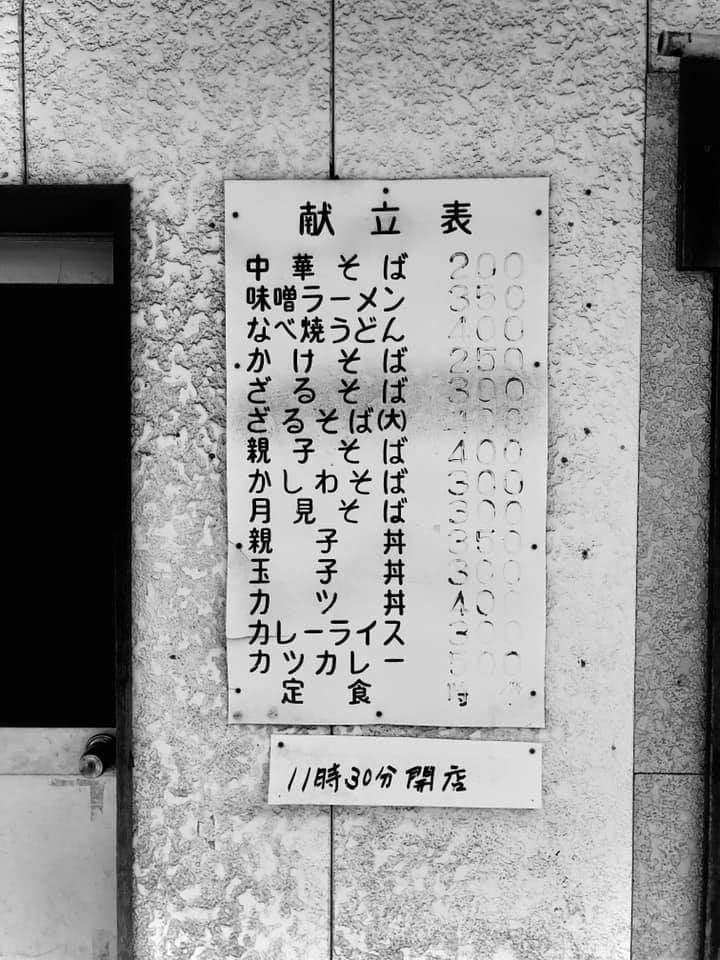 献立表
中華そば 200
味噌ラーメン 350
なべ焼うどん 400
かけそば 250
ざるそば 300
ざるそば(大) 400
親子そば 400
かしわそば 300
月見そば 300
親子丼 350
玉子丼 300
カツ丼 400
カレーライス 300
カツカレー 500
定食 時
11時30分開店